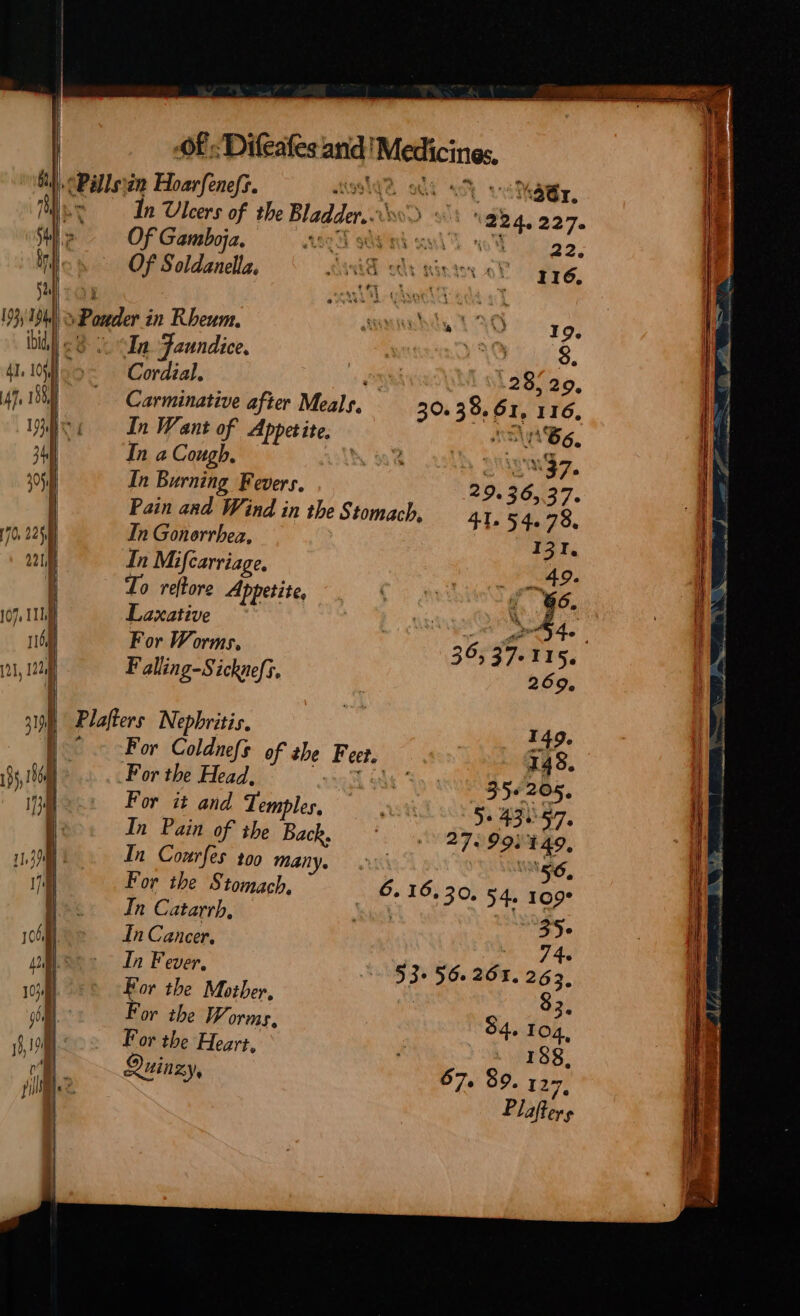 of Diſeaſes and Medicines.
Pills in Hoarſeneſs.
In Ulcers of the Bladder. 224. 227.
Of Gamboja. 22.
Of Soldanella. 116.
Powder in Rheum. 19.
In Jaundice. 8.
Cordial. 28, 29.
Carminative after Meals. 30. 38. 61, 116.
In Want of Appetite. 66.
In a Cough. 37.
In Burning Fevers. 29. 36, 37.
Pain and Wind in the Stomach, 41. 54. 78.
In Gonorrhea, 131.
In Miſcarriage. 49.
To reſtore Appetite, 66.
Laxative 54.
For Worms. 36, 37. 115.
Falling-Sickneſs. 269.
Plaſters Nephritis. 149.
For Coldneſs of the Feet. 148.
For the Head, 35. 205.
For it and Temples, 5. 43. 57.
In Pain of the Back, 27. 99. 149.
In Courſes too many. 56.
For the Stomach. 6. 16, 30. 54. 109.
In Catarrh, 35.
In Cancer. 74.
In Fever. 53. 56. 261. 263.
For the Mother, 83.
For the Worms, 84. 104,
For the Heart, 188,
Quinzy, 67. 89. 127.
Plaſters